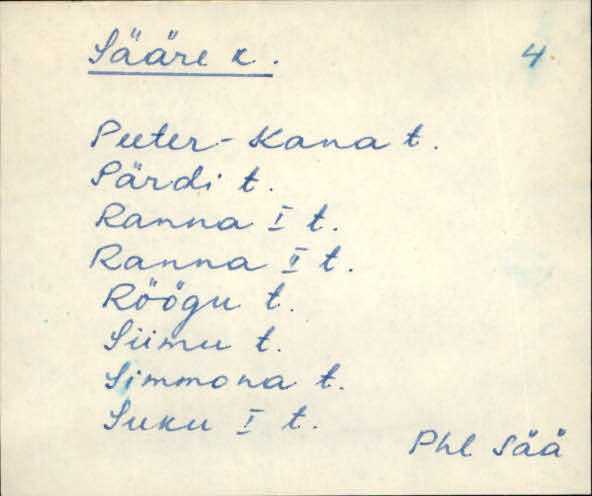 Sääre k.
4
Peeter-Kana t.
Pärdi t.
Ranna I t.
Ranna II t.
Röögu t.
Siimu t.
Simmona t.
Suku I t.
Phl Sää